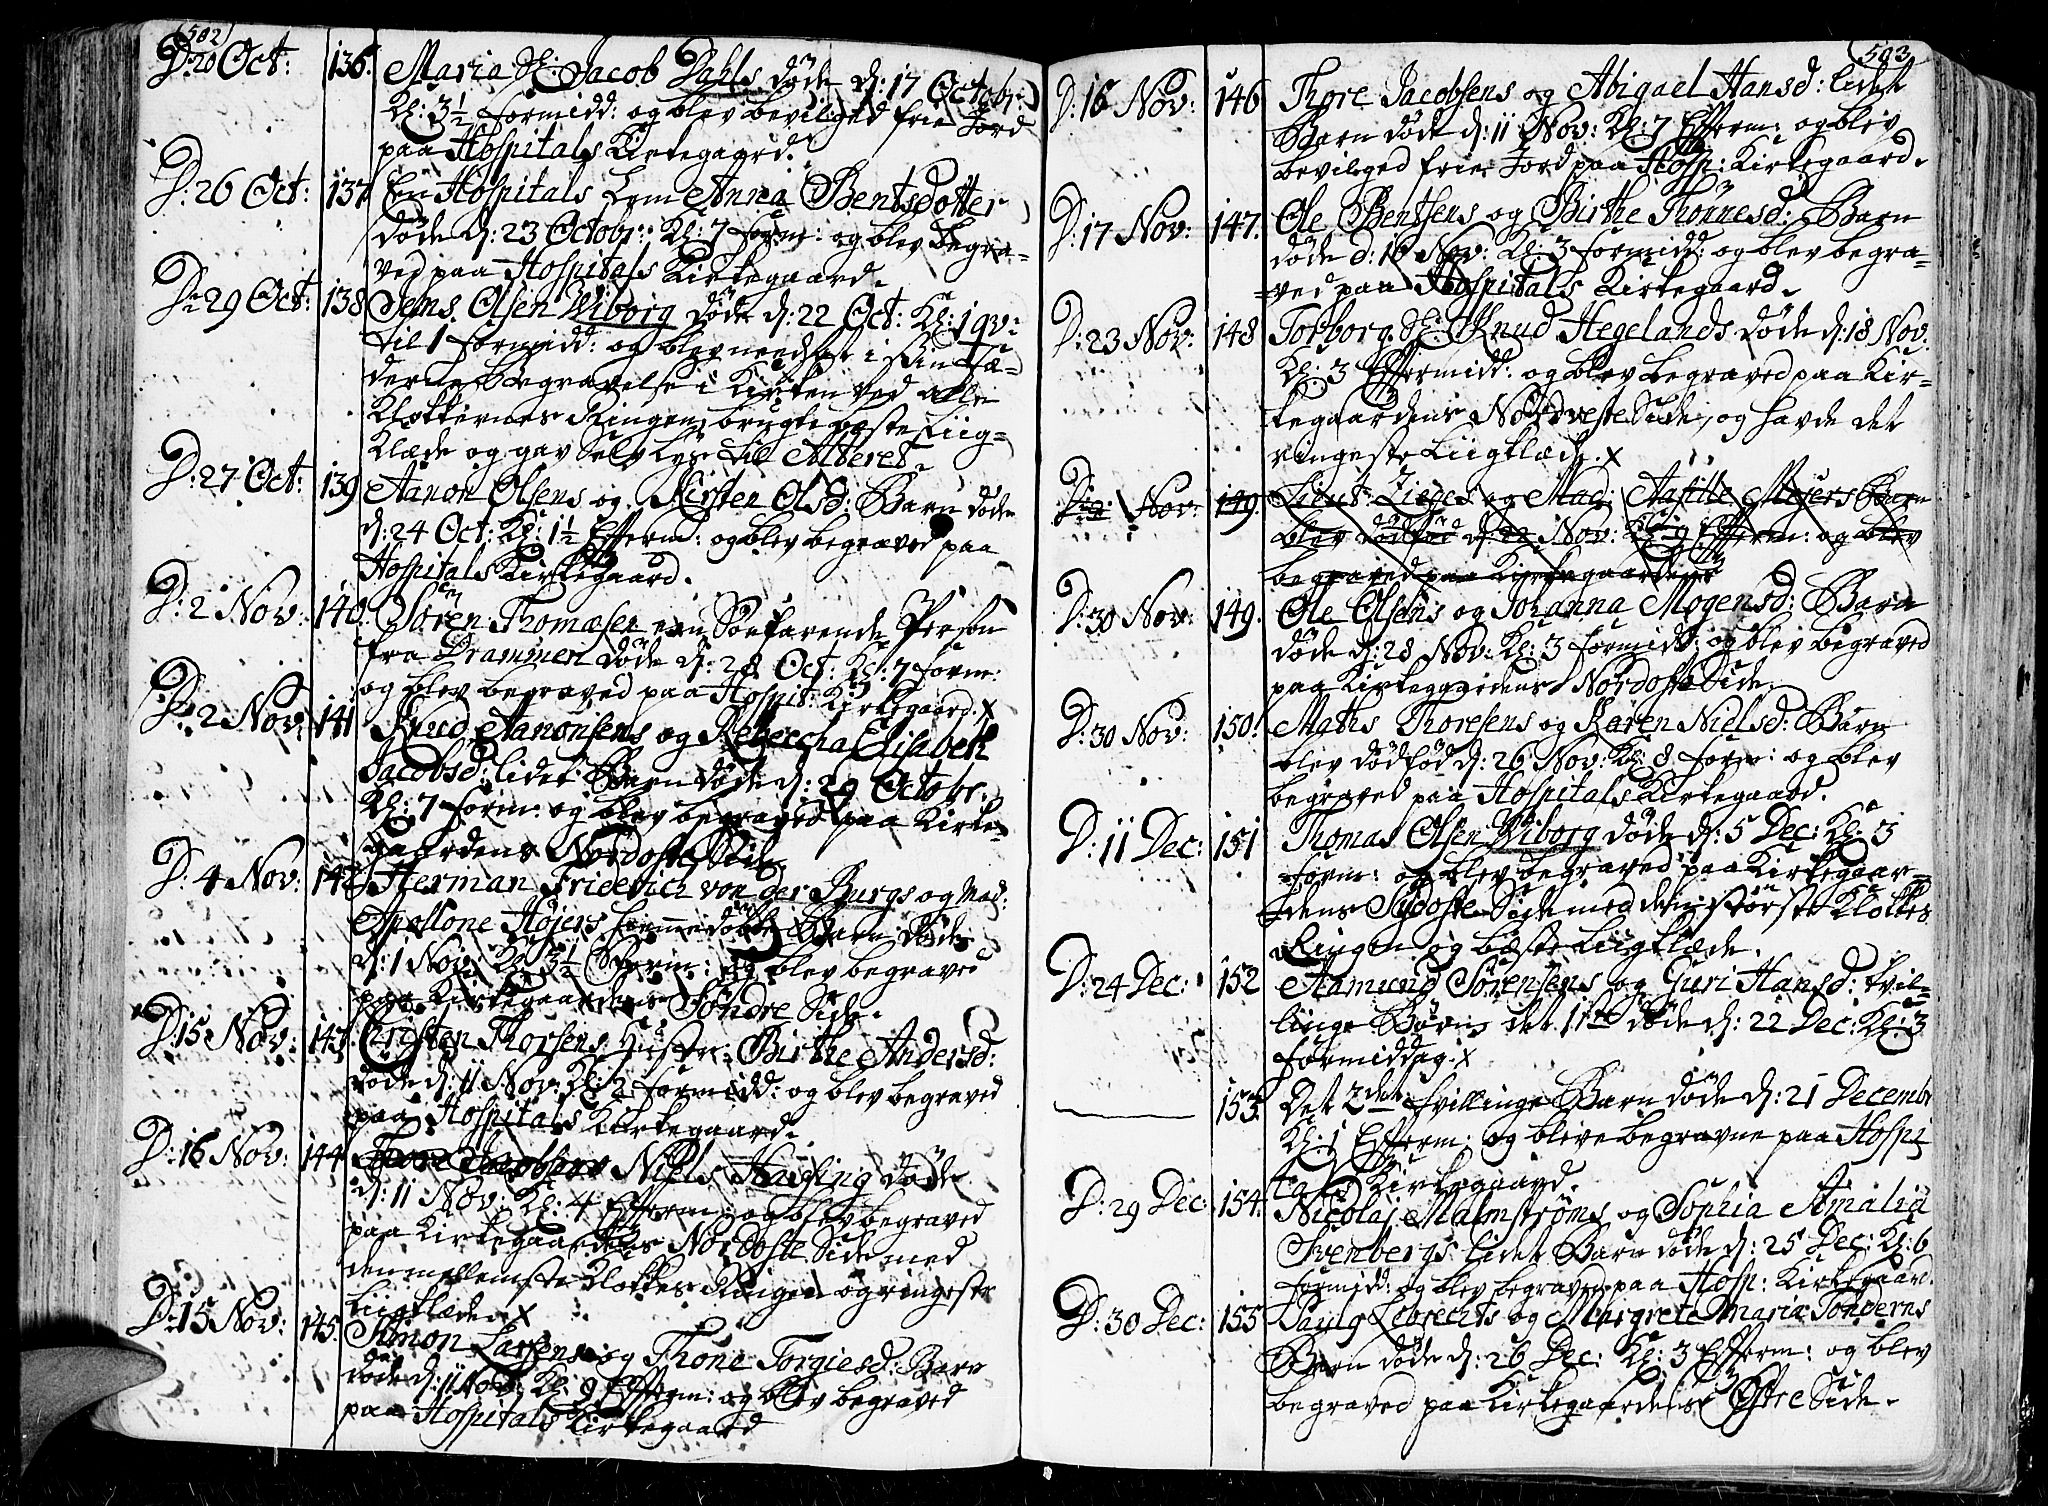 (502)
D: 20 Oct: 136. Maria Sl: Jacob Dahls døde d: 17 Octobr:
Kl: 3½ formidd: og blev bevilged frie Jord
paa Hospitals Kirkegaard.
D: 26 Oct: 137 En Hospitals Lem Anna Bentsdotter
døde d: 23 Octobr: Kl: 7 form: og blev begra-
ved paa Hospitals Kirkegaard.
D: 29 Oct: 138 Jens Olsen Wiborg døde d: 22 Oct: Kl: 1 qv:
til 1 formidd: og blev nedsat i sin Fæ-
derne Begravelse i Kirken ved alle
Klokkernes Ringen, brugte beste Liig-
Klæde og gav Selv Lys til Alteret
D: 27 Oct: 139 Aanon Olsens og Kirsten Olsd: Barn døde
d: 24 Oct: Kl: 1½ Efferm: og blev begraved paa
Hospitals Kirkegaard.
D: 2 Nov: 140. Sören Thomæsen een Söefarende Person
fra Drammen døde d: 28 Oct: Kl: 7 form:
og blev begraved paa Hospit: Kirkegaard. X
D: 2 Nov: 141 Knud Aanonsens og Rebeccha Elisabeth
Jacobsd: lidet Barn døde d: 29 Octobr:
Kl: 7 form: og blev begraved paa Kirke-
gaardens Nordoste Side
D: 4 Nov: 142 Herman Friderich von der Burgs og Mad:
Apollone Höjers hiemmedöbte Barn døde
d: 1 Nov: Kl: 3½ Efferm: og blev begraved
paa Kirkegaardens Söndre Side.
D: 15 Nov: 143. Christen Thorsens Hustru Birthe Andersd:
døde d: 11 Nov: Kl: 2 formidd: og blev begraved
paa Hospitals Kirkegaard.
D: 16 Nov: 144 Thore Jacobsens Niels Hassing døde
d: 11 Nov: Kl: 4 Efferm: og blev begraved
paa Kirkegaardens Nordoste Side med
den mellemste Klokkes Ringen og ringeste
Liigklæde. X
D: 15 Nov: 145. Simon Larsens og Thone Torgiesd: Barn
døde d: 11 Nov: Kl: 9 Efferm: og blev begraved
paa Hospitals Kirkegaard
503
D: 16 Nov: 146 Thore Jacobsens og Abigael Hansd: lidet
Barn døde d: 11 Nov: Kl: 7 Efferm: og blev
bevilged frie Jord paa Hosp: Kirkegaard.
D: 17 Nov: 147. Ole Bentsens og Birthe Thönnesd: Barn
døde d: 16 Nov: Kl: 3 formidd: og blev begra-
ved paa Hospitals Kirkegaard.
D: 23 Nov: 148 Torborg Sl: Knud Hegelands døde d: 18 Nov:
Kl: 3 Effermidd: og blev begraved paa Kir-
kegaardens Nordveste Side, og havde det
ringeste Liigklæde. X
Nov: 149. Lieut: Zieges og Mad: Aasille Mejers Barn
blev dødfød d: 22 Nov: Kl: 9 Efferm: og blev
begraved paa Kirkegaardens
D: 30 Nov: 149. Ole Olsens og Johanna Mogensd: Barn
døde d: 28 Nov: Kl: 3 formidd: og blev begraved
paa Kirkegaardens Nordoste Side.
D: 30 Nov: 150. Maths Thoresens og Karen Nielsd: Barn
blev dødfød d: 26 Nov: Kl: 8 form: og blev
begraved paa Hospitals Kirkegaard.
D: 11 Dec: 151 Thomas Olsen Wiborg døde d: 5 Dec: Kl: 3
form: og blev begraved paa Kirkegaar-
dens Sydoste Side med den störste Klokkes
Ringen og beste Liigklæde.
D: 24 Dec: 152 Aamund Sörensens og Guri Hansd: tvil-
linge Börn det 1ste døde d: 22 Dec: Kl: 3
formiddag. X
153. Det 2det tvillinge Barn døde d: 21 Decembr
Kl: 1 Efferm: og bleve begravne paa Hospi
tals Kirkegaard.
D: 29 Dec: 154. Nicolaj Malmströms og Sophia Amalia
Svenbergs lidet Barn døde d: 25 Dec: Kl: 6
formidd: og blev begraved paa Hosp: Kirkegaard.
D: 30 Dec: 155 Povlg Lebrechts og Margrete Maria Tonderns
Barn døde d: 26 Dec: Kl: 3 Efferm: og blev
begraved paa Kirkegaardens Østre Side.